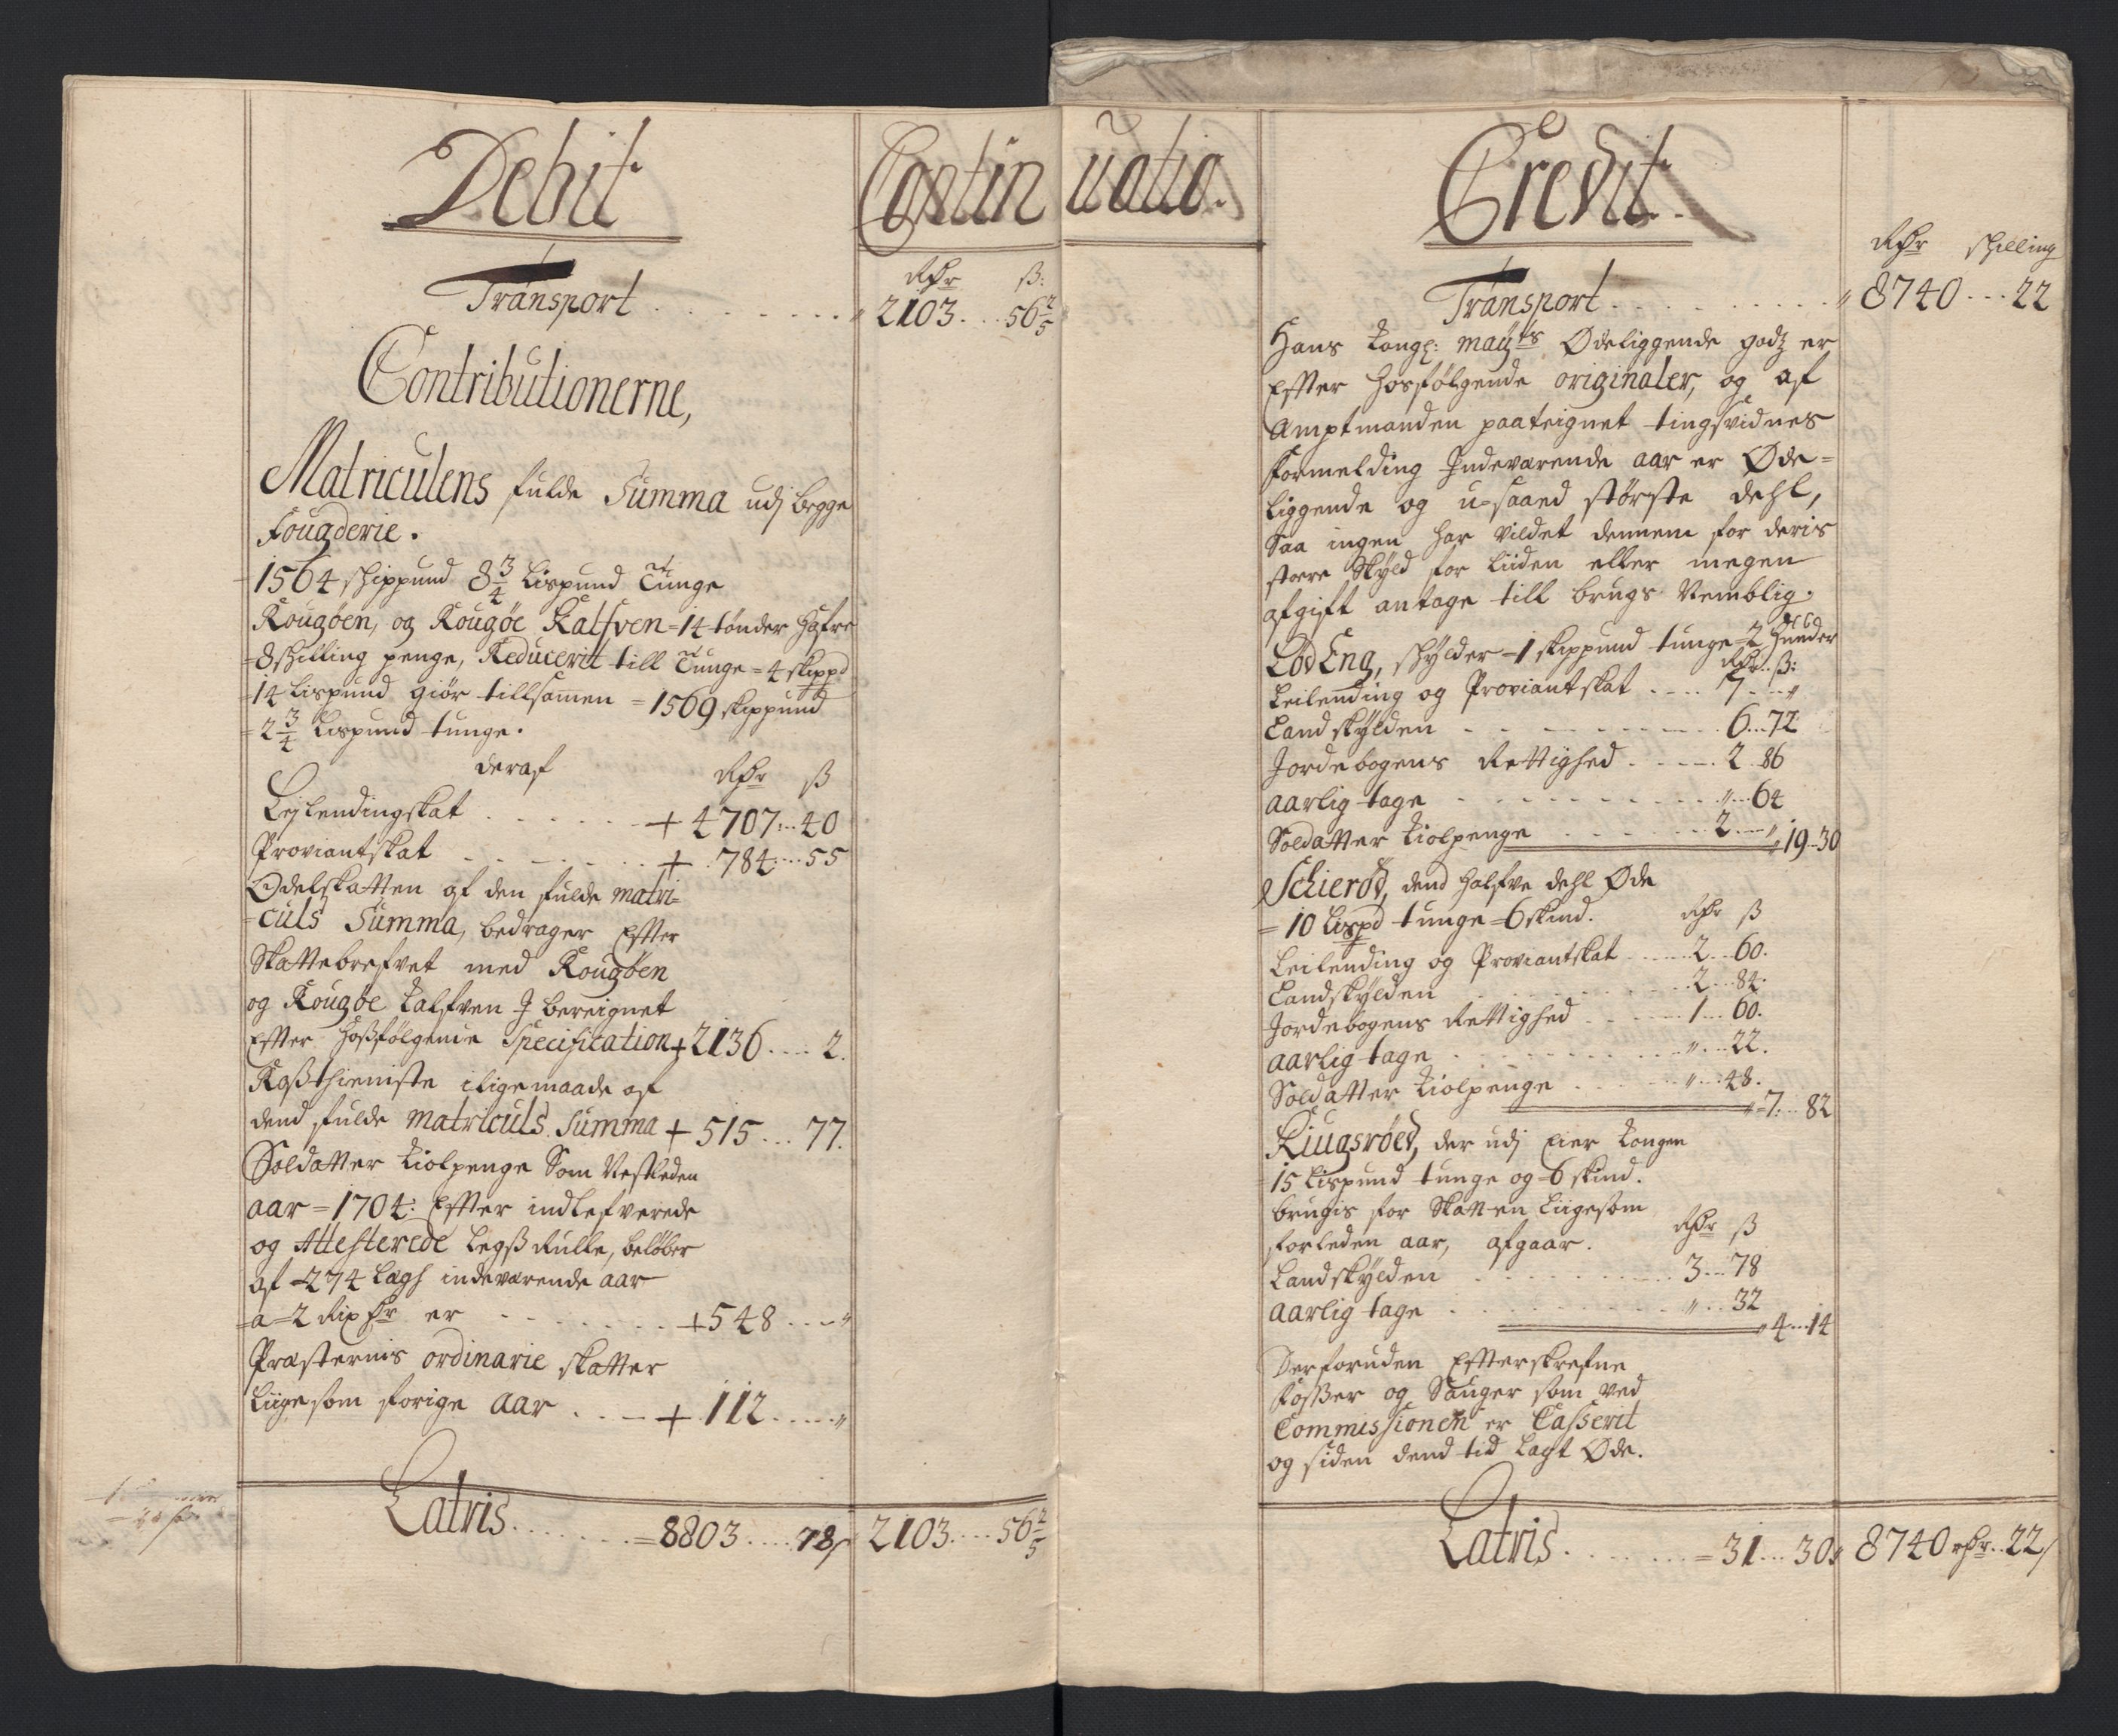 Debit
Continuatio.
Transport . . . . . . . .
Rdr ß:
2103. . . 56 2/5
Contributionerne,
Matriculens fulde Summa udj begge
Fougderie.
1564 shippund 8 3/4 Lispund Tunge
Rougøen, og Rougøe Kalfven = 14 tønder Hafre
= 8 shilling penge, Reducerit till Tunge = 4 skippd
= 14 Lispund giør tillsamen = 1569 skippund
= 2 3/4 Lispund tunge.
deraf Rdr ß
Lejlendingskat . . . . . . + 4707: . . 40
Proviantskat . . . . . . + .784: . . . 55
Odelskatten af den fulde matri=
=culs Summa, bedrager Efter
Skattebrefvet med Rougøen
og Rougøe Kalfven J bereignet
Efter hoßfølgende Specification + 2136 . . . . 2.
Roßthienste iligemaade af
dend fulde matriculs Summa + 515 . . . 77.
Soldatter Kiolpenge Som Nestleden
aar = 1704: Efter indlefverede
og Attesterede Legß Rulle, beløber
af = 274 Lægh indeværende aar
= a = 2 Rixdr er . . . . . . . + 548 . . . "
Præsternis ordinarie skatter
Liigesom forige aar . . . + . 112 . . . . "
Latris . . . . . . = 8803 . . . . 78 / 2103. . . . 56 2/5
Credit.
Rdr shilling
Transport . . . . . . . . . . " 8740 . . . 22
Hans Kongl: mayts Ødeliggende godz er
Efter hosfølgende originaler, og af
Amptmanden paateignet tingsvidnes
formelding Indeværende aar er Øde=
liggende og u=saaed største dehl,
Saa ingen har vildet dennem for deris
store Skyld for liiden eller megen
afgift antage till brugs Nemblig.
Lød Eng, skylder = 1 skippund tunge = 2 Huuder
Rdr . . ß:
Leilending og Proviantskat . . . . 7 . . . "
Landskylden . . . . . . . . . 6 . . . 72
Jordebogens Rettighed . . . . . 2 . . 86
aarlig tage . . . . . . . . . . " . . . 64
Soldatter Kiolpenge . . . . . . . 2 . . . " " 19 . . 30
Schierød, dend halfve dehl Øde
= 10 Lispd tunge = 6 skind. Rdr ß
Leilending og Proviantskat . . . . . 2 . . 60.
Landskylden . . . . . . . . . . 2 . . . 84.
Jordebogens Rettighed . . . . . 1 . . . 60.
aarlig tage . . . . . . . . . . " . . . 22.
Soldatter Kiolpenge . . . . . . " . . . 48.
" = 7: . . 82
Kiugsrøed, der udj Eier Kongen
15 Lispund tunge og = 6 skind.
brugis for Skatten Liigesom
forleden aar, afgaar. Rdr ß
Landskylden . . . . . . . . . . 3 . . . 78
aarlig tage . . . . . . . . . . " . . 32
" 4 . . . 14
Derforuden Efterskrefne
Foßer og Sauger som ved
Commissionen er Casserit
og siden dend tid Lagt Øde.
Latris . . . . . . . = 31 . . . 30 " 8740 rdr . . 22 /